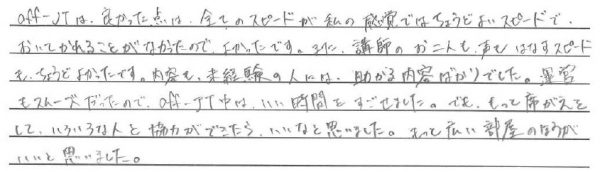 off-JTは、良かった点は、全てのスピードが私の感覚ではちょうどよいスピードで、
おいてかれることがなかったので、よかったです。特に、講師のお二人も、声も はなすスピード
も、ちょうどよかったです。内容も、未経験の人には、助かる内容ばかりでした。運営
もスムーズだったので、off-JT中は、いい時間をすごせました。でも、もっと席がえを
して、いろいろな人と協力ができたら、いいなと思いました。もっと広い部屋のほうが
いいと思いました。